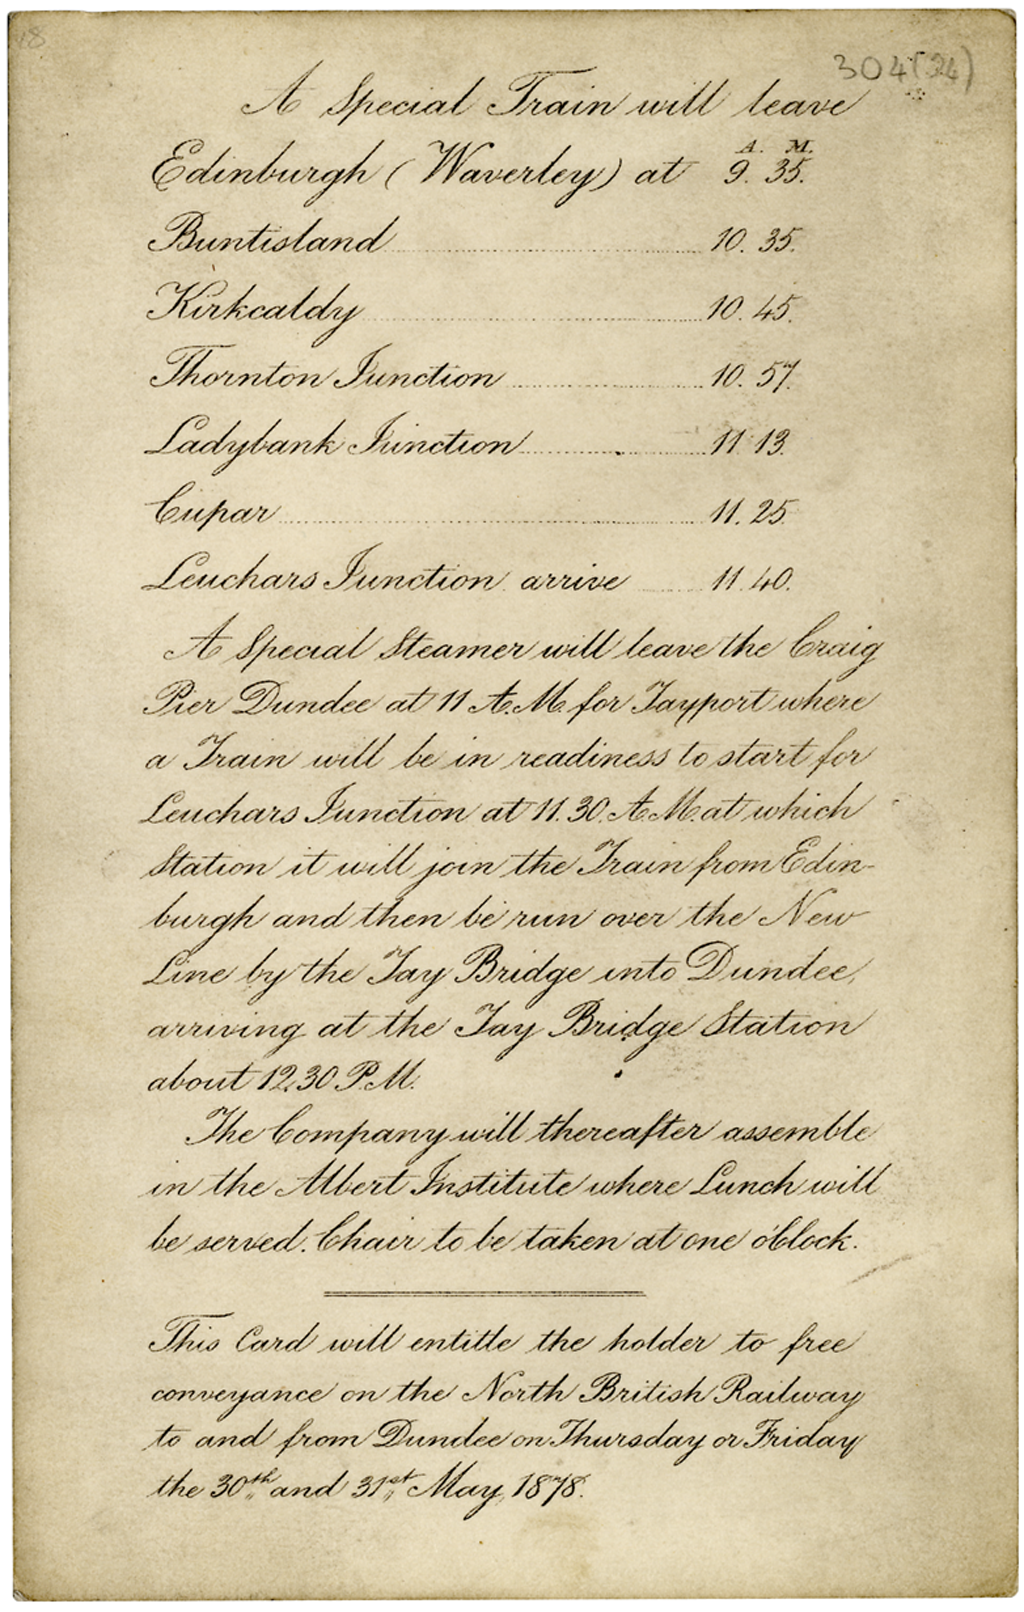 304(24)
A Special Train will leave
A. M.
Edinburgh (Waverley) at 9. 35.
Buntisland 10. 35.
Kirkcaldy 10. 45.
Thornton Junction 10. 57.
Ladybank Junction 11. 13.
Cupar 11. 25.
Leuchars Junction arrive 11. 40.
A Special Steamer will leave the Craig
Pier Dundee at 11 A.M. for Tayport where
a Train will be in readiness to start for
Leuchars Junction at 11. 30. A.M. at which
Station it will join the Train from Edin-
burgh and then be run over the New
Line by the Tay Bridge into Dundee,
arriving at the Tay Bridge Station
about 12.30 P.M.
The Company will thereafter assemble
in the Albert Institute where Lunch will
be served. Chair to be taken at one o'Clock.
This Card will entitle the holder to free
conveyance on the North British Railway
to and from Dundee on Thursday or Friday
the 30th and 31st May, 1878.